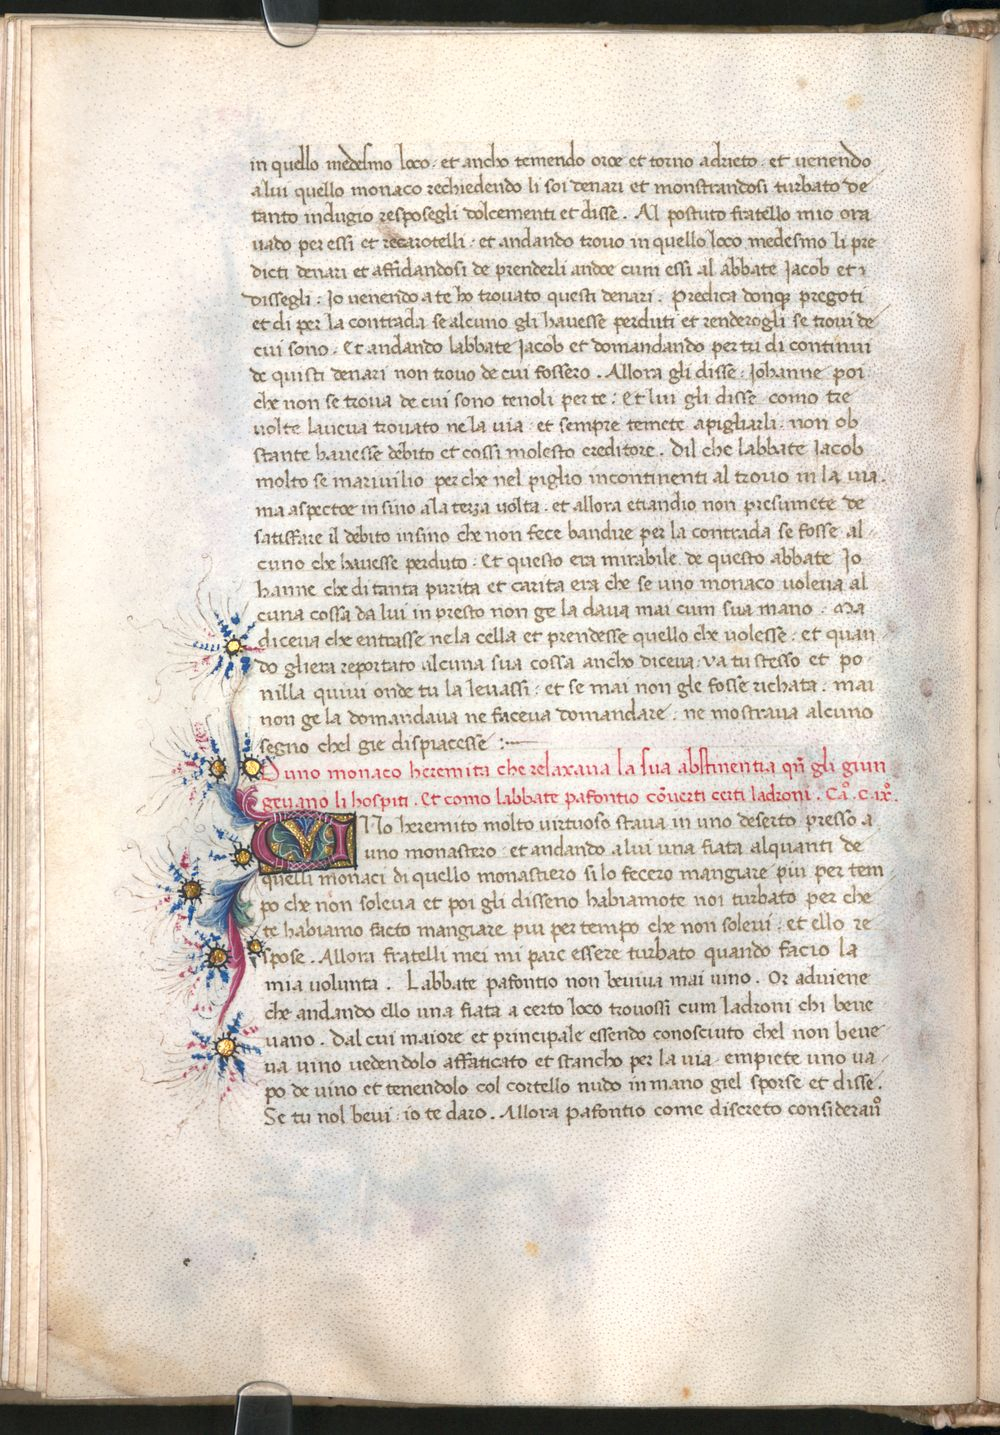 in quello medesmo loco · et ancho temendo oroe et torno adrieto · et uenendo
a lui quello monaco rechiedendo li soi denari et monstrandosi turbato de
tanto indugio resposegli dolcementi et disse . Al postuto fratello mio ora
uado per essi et recarotelli · et andando trouo in quello loco medesmo li pre
dicti denari et affidandosi de prenderli andoe cum essi al abbate Jacob et
dissegli : Jo uenendo a te ho trouato questi denari . Predica donqꝫ pregoti
et di per la contrada se alcuno gli hauesse perduti et renderogli se troui de
cui sono . Et andando labbate Jacob et domandando per tri di continui
de quisti denari non trouo de cui fossero . Allora gli disse : Johanne poi
che non se troua de cui sono tenoli per te : Et lui gli disse como tre
uolte laueua trouato ne la uia · et sempre temete a pigliarli · non ob
stante hauesse debito et cossi molesto creditore . Dil che labbate Jacob
molto se mariuilio per che nel piglio incontinenti al trouo in la uia .
ma aspectoe in sino a la terza uolta · et allora etiandio non presumete de
satisfare il debito insino che non fece bandire per la contrada se fosse al
cuno che hauesse perduto · Et questo era mirabile de questo abbate Jo
hanne che di tanta purita et carita era che se uno monaco uoleua al
cuna cossa da lui in presto non ge la daua mai cum sua mano · Ma
diceua che entrasse ne la cella et prendesse quello che uolesse · et quan
do gliera reportato alcuna sua cossa ancho diceua · va tu stesso et po
nilla quiui onde tu la leuassi · et se mai non gle fosse richata · mai
non ge la domandaua ne faceua domandare · ne mostraua alcuno
segno chel gie dispiacesse :
D uno monaco heremita che relaxaua la sua abstinentia qñ gli giun
geuano li hospiti . Et como labbate pafontio cõuerti certi ladroni . Cao . C . ixo .
VNo heremito molto uirtuoso staua in uno deserto presso a
uno monastero · et andando a lui una fiata alquanti de
quelli monaci di quello monastiero si lo fecero mangiare piu per tem
po che non soleua et poi gli disseno habiamote noi turbato per che
te habiamo facto mangiare piu per tempo che non soleui · et ello re
spose . Allora fratelli mei mi pare essere turbato quando facio la
mia uolunta . Labbate pafontio non beuiua mai uino . Or aduiene
che andando ello una fiata a certo loco trouossi cum ladroni chi beue
uano . Dal cui maiore et principale essendo conosciuto chel non beue
ua uino uedendolo affaticato et stancho per la uia · empiete uno ua
po de uino et tenendolo col cortello nudo in mano giel sporse et disse .
Se tu nol beui · io te daro . Allora pafontio come discreto